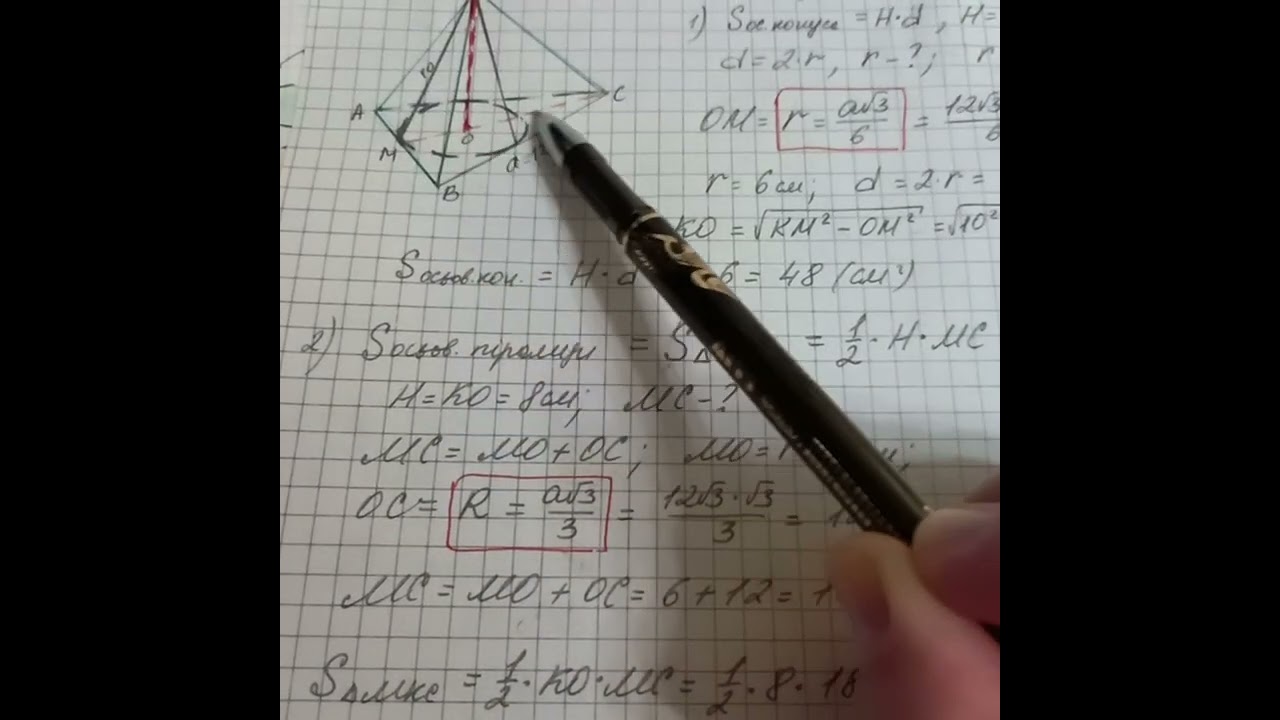 1) Sос.конуса = H·d, H=
d = 2·r, r - ?; r
10
A
C
O
M
Q
B
OM = r = a√3/6 = 12√3/6
r = 6см; d = 2·r =
KO = √KM² - OM² = √10²
Sосьов.кон. = H·d 6 = 48 (см²)
2) Sосьов. = S = 1/2 · H · MC
H = KO = 8см; MC - ?
MC = MO + OC; MO =
OC = R = a√3/3 = 12√3·√3/3 =
MC = MO + OC = 6 + 12 = 1
S△MKC = 1/2 · KO · MC = 1/2 · 8 · 18